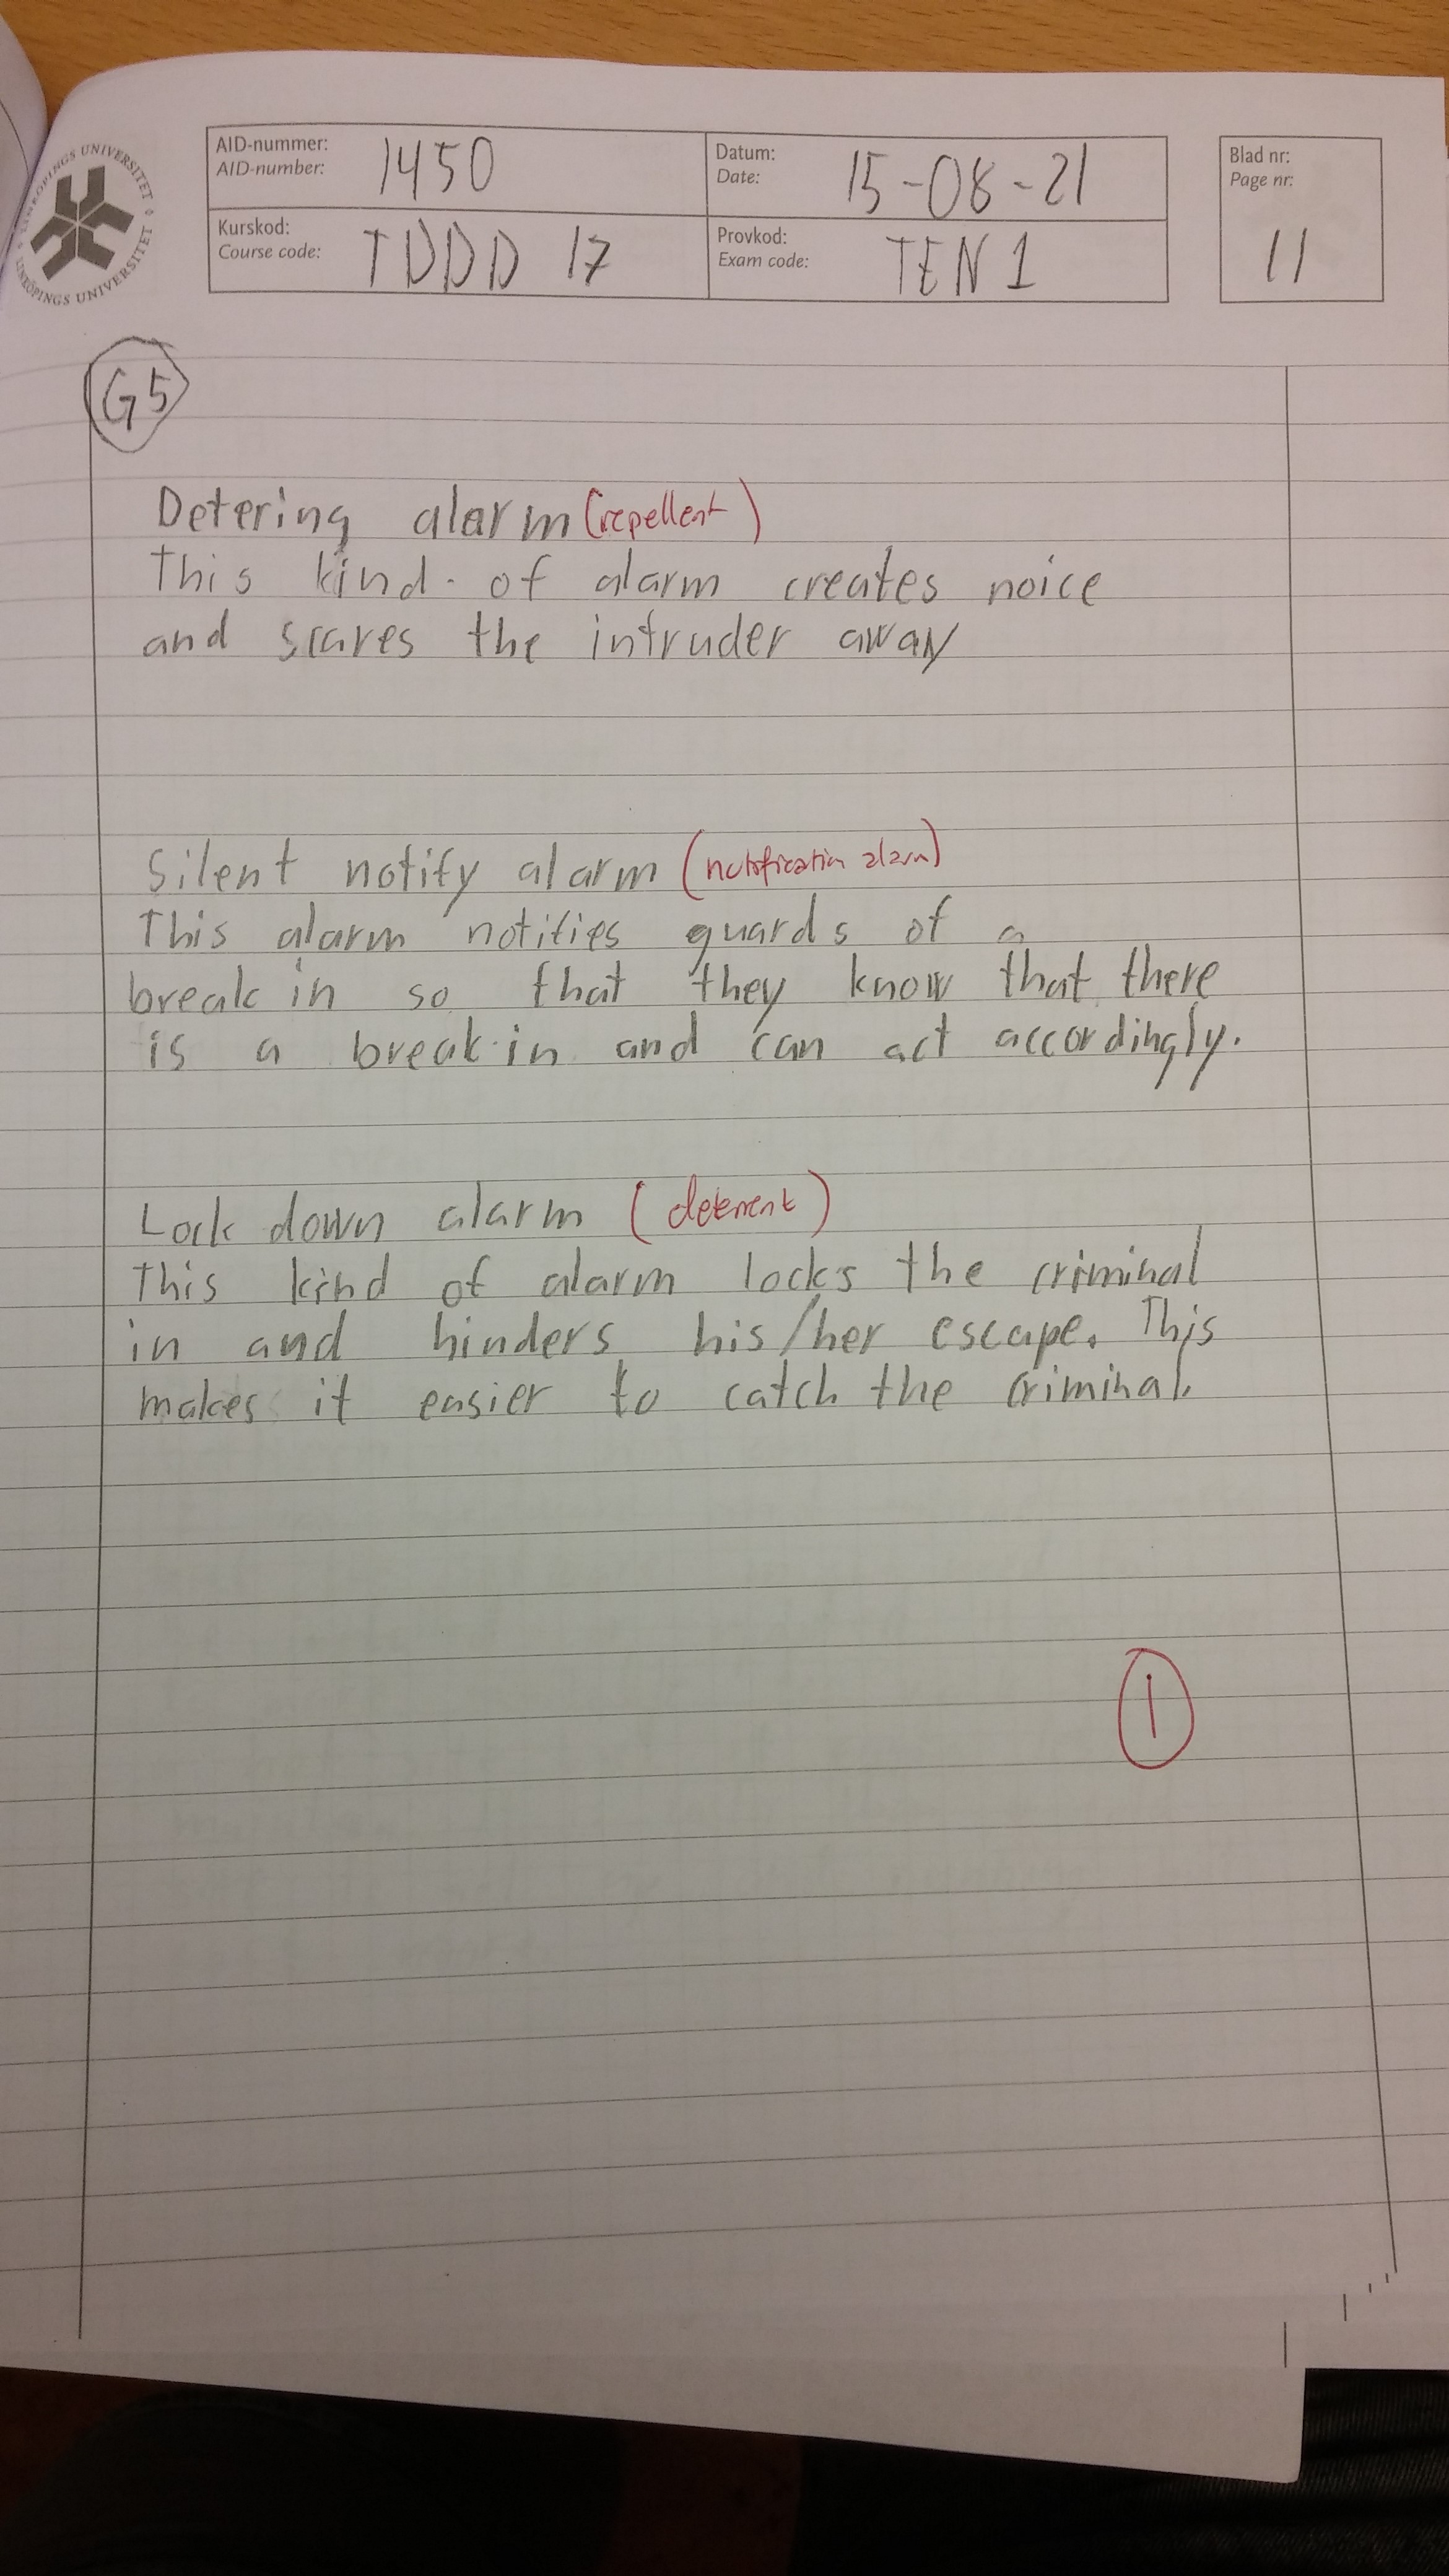 LINKÖPINGS UNIVERSITET
LINKÖPINGS UNIVERSITET
AID-nummer:
AID-number:
1450
Datum:
Date:
15-08-21
Blad nr:
Page nr:
11
Kurskod:
Course code:
TDDD 17
Provkod:
Exam code:
TEN 1
G5
Detering alarm (repellent)
This kind of alarm creates noice
and scares the intruder away
Silent notify alarm (notification alarm)
This alarm notifies guards of a
break in so that they know that there
is a break in and can act accordingly.
Lock down alarm (deterrent)
This kind of alarm locks the criminal
in and hinders his/her escape. This
makes it easier to catch the criminal.
1